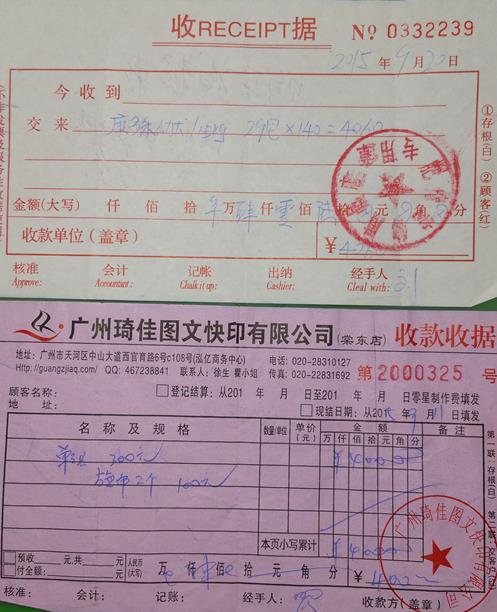 收RECEIPT据 № 0332239
2015年9月20日
今收到
交来 29包×140=4060
金额(大写) 仟 佰 拾 万肆仟零陆拾 元 角 分
收款单位(盖章) ¥4060
核准 会计 记帐 出纳 经手人
Approve: Accountant: Chalk it up: Cashier: Cleal with:
①存根(白) ②顾客(红)
专用章
广州琦佳图文快印有限公司(棠东店) 收款收据
地址:广州市天河区中山大道西官育路6号c108号(泓亿商务中心) 电话:020-28310127
Http://guangzjiaq.com/ QQ:467238841 联系人:徐生 瞿小姐 传真:020-22831692 第2000325号
顾客名称: □登记结算:从201 年 月 日至201 年 月 日零星制作费填发
地 址: □现结日期:从2015年9月11日填发
名称及规格 数量/单位 单价(元) 金额 备注
万 仟 佰 拾 元 角 分
300元 ¥40000
2个 100元
本页小写累计 ¥40000
□预收 元,共 元 人民币(大写) 万 仟 佰 拾 元 角 分 ¥
□付全额: 元
核准: 会计: 记账: 经手人: 收款方(盖章)
第一联:存根(白)
广州琦佳图文快印有限公司